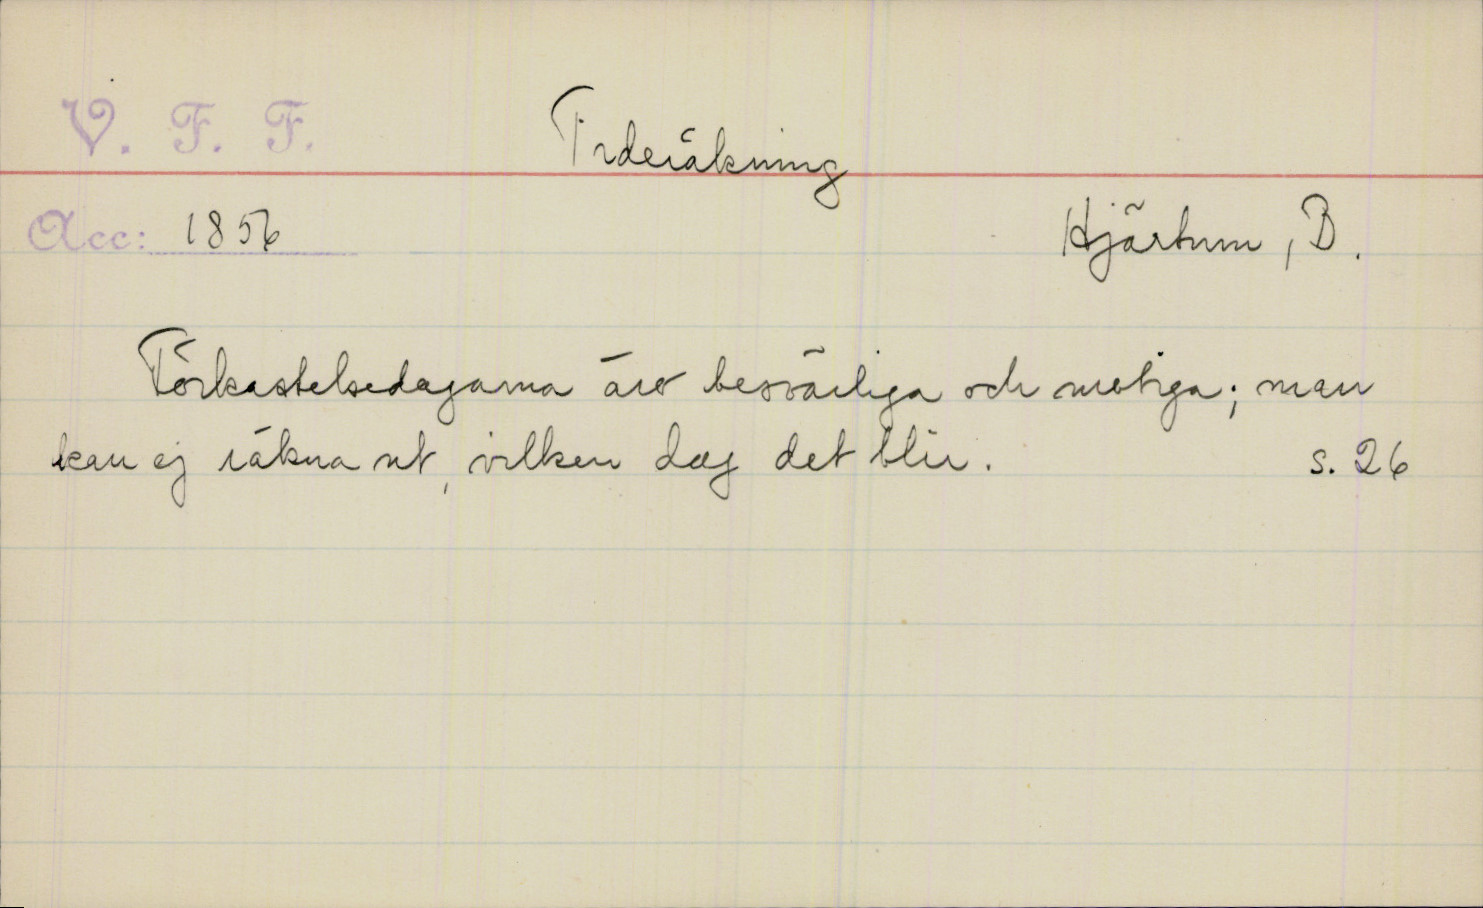 V. F. F.
Tideräkning
Acc: 1856
Hjärtum, B.
Förkastelsedagarna äro besvärliga och motiga; man
kan ej räkna ut, vilken dag det blir. s. 26